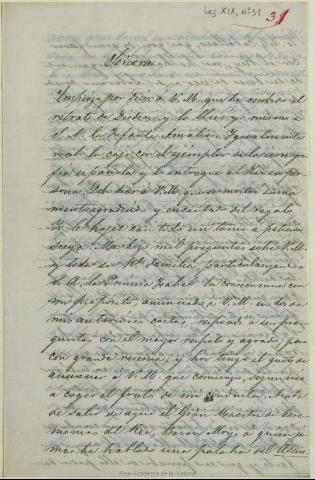 Leg. XIX, nº 31
31
Señora
Empiezo por decir á V. M. que ha recibido el
retrato de Dresden y lo llevé yo mismo a
S. A. la Infanta Amalia: Igualmente
la caja con el ejemplar de la
española y la entregué al Rey en per
sona. Debo decir á V. M. que se mostró suma
mente agradecido y encantado del regalo.
lo hojeó casi todo un tomo á peticion
suya. Me hizo mil preguntas sobre V. M.
y toda su Rl. familia, particularizando
S. A. la Princesa Isabel. Yo consecuente con
mi propósito, anunciado á V. M. en dos de
mis anteriores cartas, respondí á sus pre
guntas con el mayor respeto y agrado, pero
con grande reserva, y hoy tengo el gusto de
anunciar á V. M. que comienzo, segun creo
a coger el fruto de mi conducta. Acaba
de salir de aquí el Gran Maestro de Cere
monias del Rey, Baron Moy, a quien ja
mas he hablado una palabra del
Real Academia de la Historia